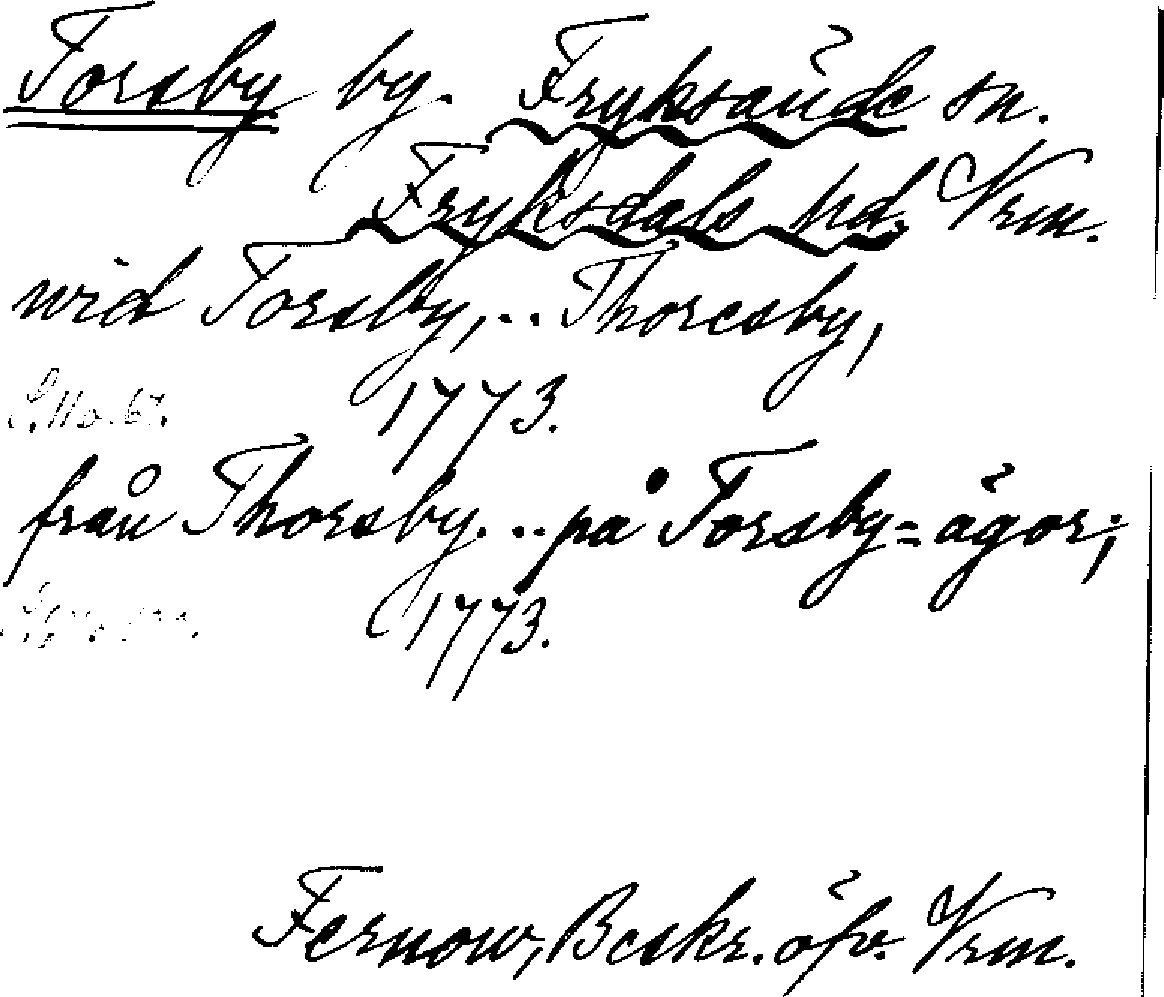 Torsby by. Fryksände sn.
Fryksdals hd. Vrm.
wid Torsby,.. Thoresby,
1773.
från Thorsby... på Torsby=ägor;
1773.
Fernow, Beskr. öfv. Vrm.